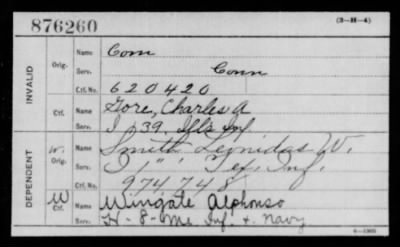 876260
(3-H-4)
INVALID
Orig.
Name Com
Serv. Conn
Ctf. No. 620420
Ctf.
Name Gore, Charles A
Serv. I 139, Ills Inf
DEPENDENT
W. Orig.
Name Smith Leonidas W.
Serv. " " Tex. Inf.
Ctf. No. 974748
W Ctf.
Name Wingate Alphonso
Serv. H-8-Me. Inf. + Navy